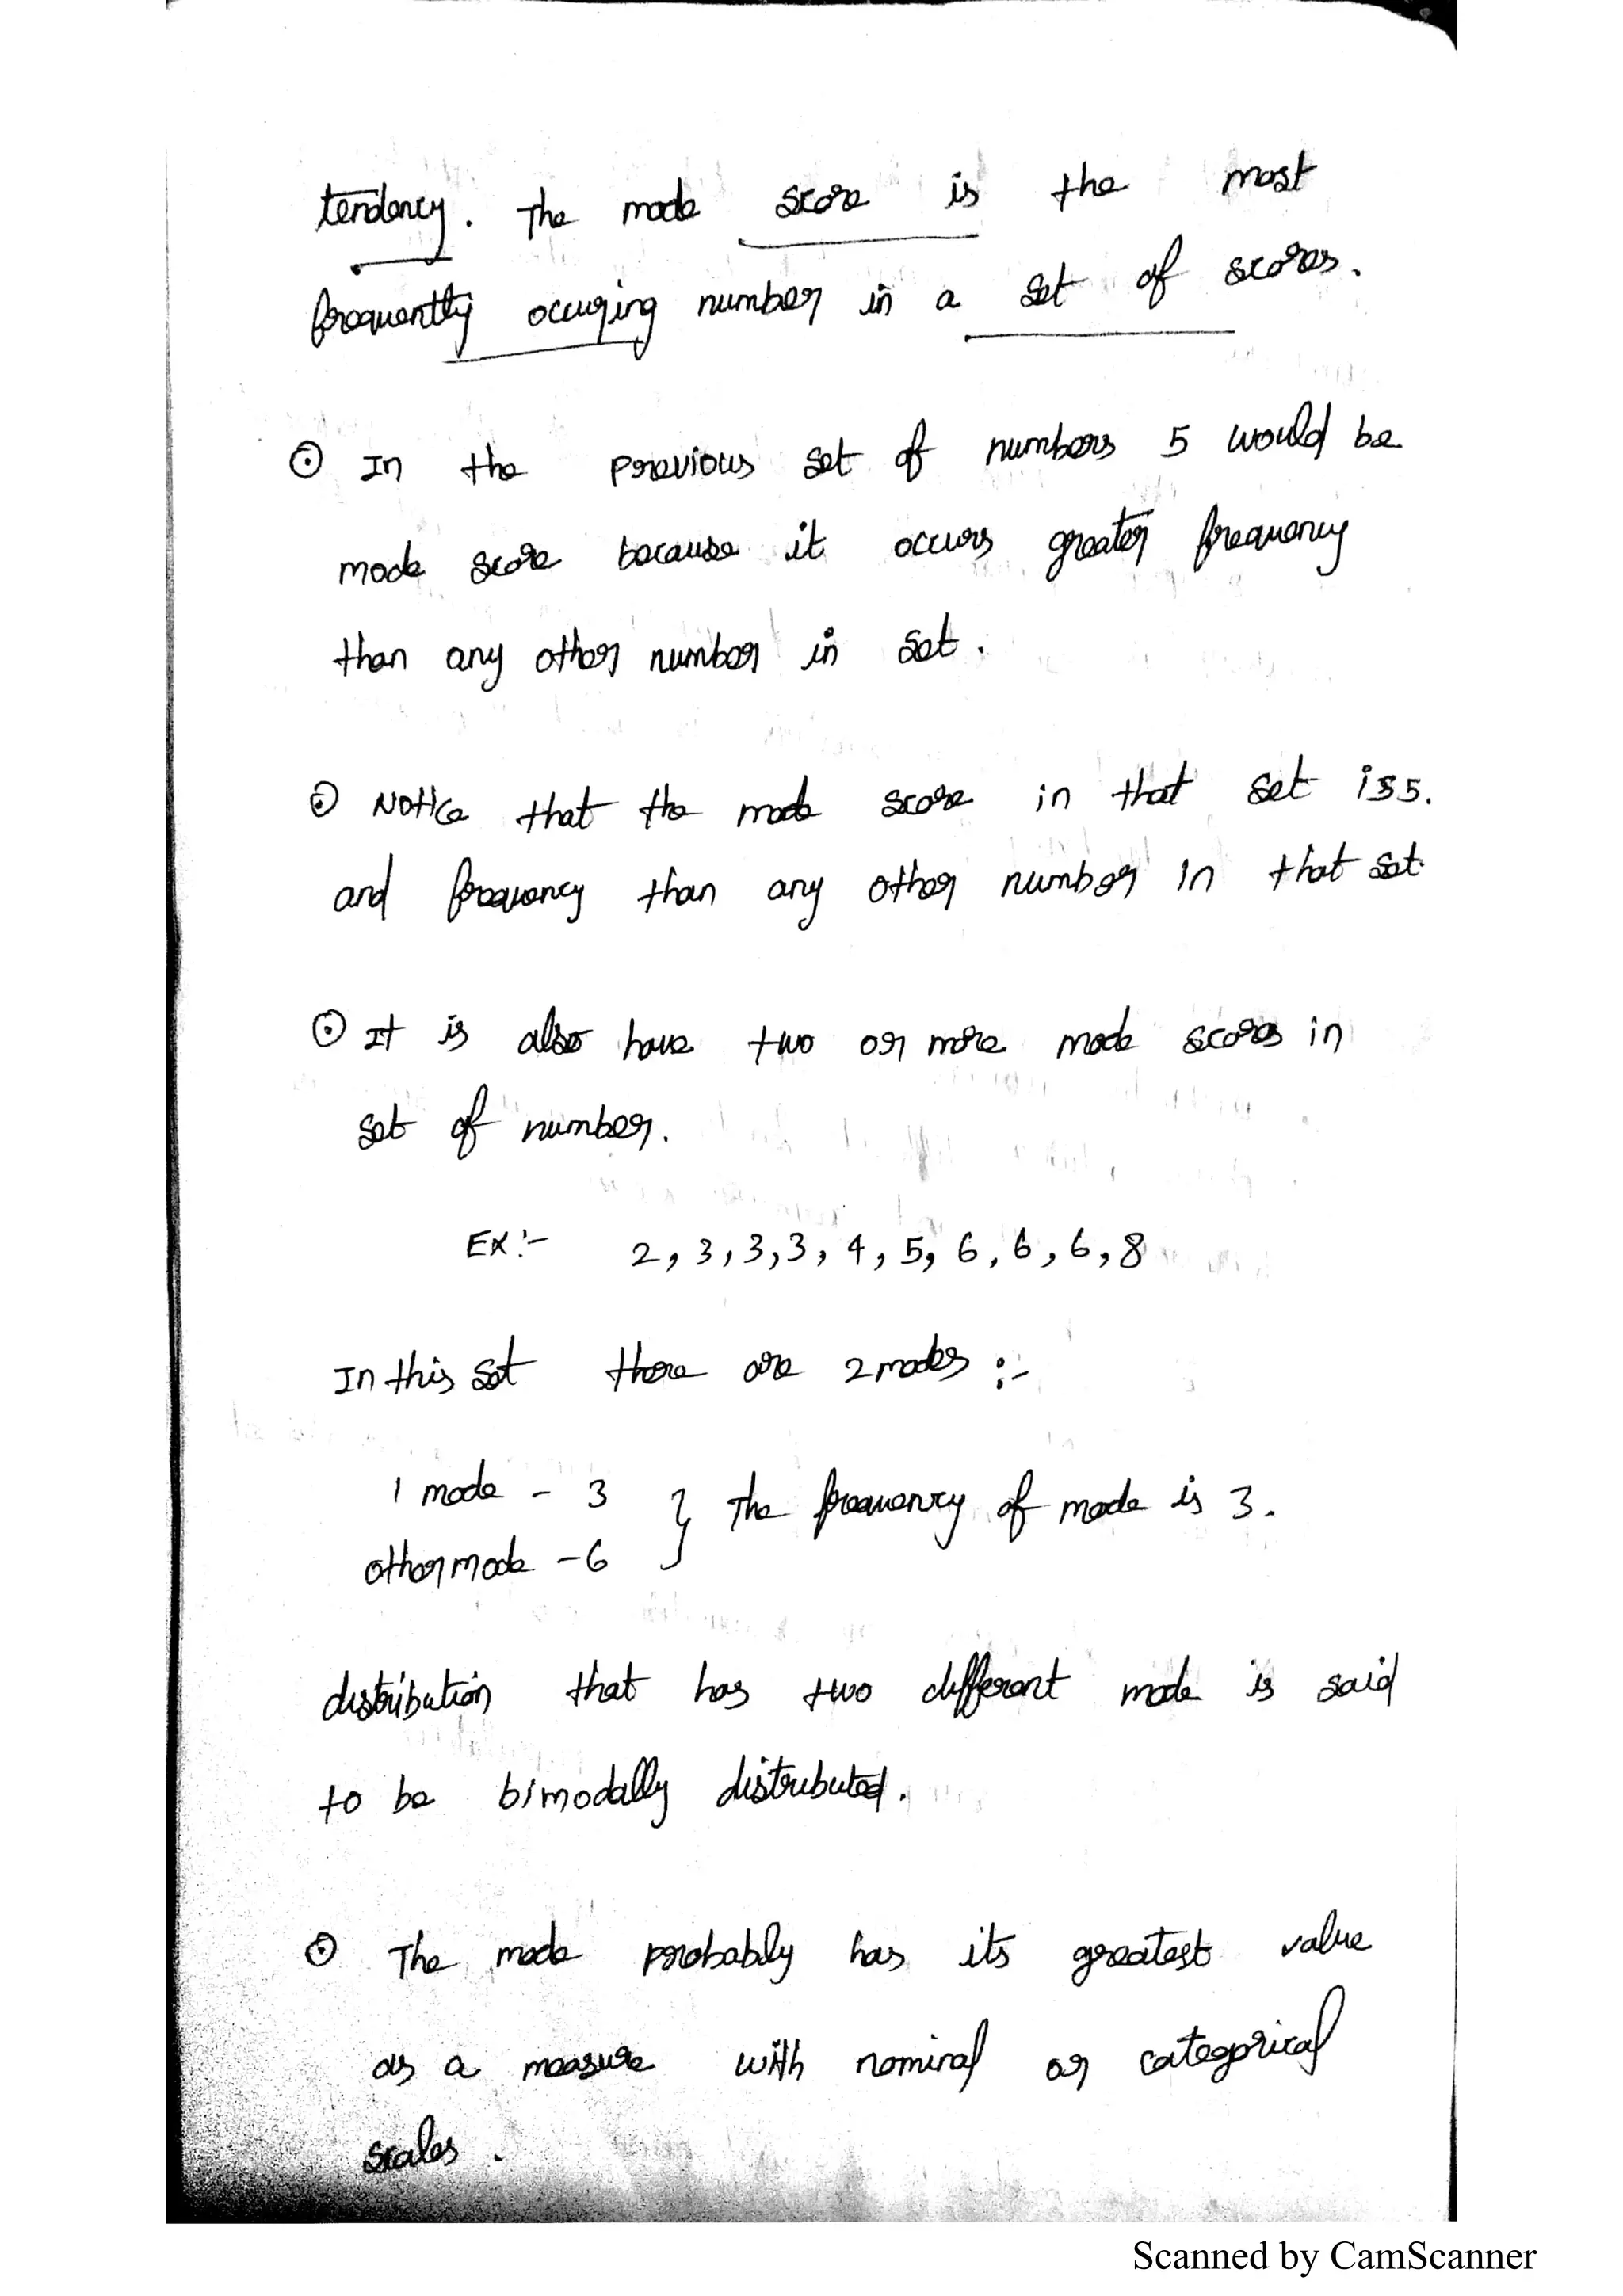 tendency. The mode score is the most
frequently occuring number in a set of scores.
⊙ In the previous set of numbers 5 would be
mode score because it occurs greater frequency
than any other number in set.
⊙ Notice that the mode score in that set is 5.
and frequency than any other number in that set.
⊙ It is also have two or more mode scores in
set of number.
Ex:- 2, 3, 3, 3, 4, 5, 6, 6, 6, 8
In this set there are 2 modes :-
1 mode - 3
other mode - 6 } The frequency of mode is 3.
distribution that has two different mode is said
to be bimodally distributed.
⊙ The mode probably has its greatest value
as a measure with nominal or categorical
scales.
Scanned by CamScanner